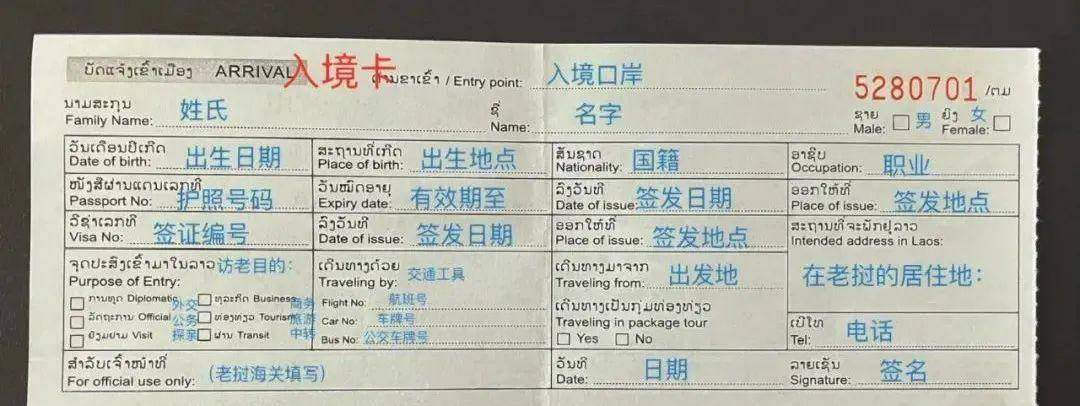 ບັດແຈ້ງເຂົ້າເມືອງ ARRIVAL 入境卡 ດ່ານຂາເຂົ້າ / Entry point: 入境口岸
5280701 /ຕມ
ນາມສະກຸນ ຊື່ ຊາຍ ຍິງ
Family Name: 姓氏 Name: 名字 Male: 男 Female: 女
ວັນເດືອນປີເກີດ ສະຖານທີ່ເກີດ ສັນຊາດ ອາຊີບ
Date of birth: 出生日期 Place of birth: 出生地点 Nationality: 国籍 Occupation: 职业
ໜັງສືຜ່ານແດນເລກທີ ວັນໝົດອາຍຸ ລົງວັນທີ ອອກໃຫ້ທີ່
Passport No: 护照号码 Expiry date: 有效期至 Date of issue: 签发日期 Place of issue: 签发地点
ວີຊ່າເລກທີ ລົງວັນທີ ອອກໃຫ້ທີ່ ສະຖານທີ່ຈະພັກຢູ່ລາວ
Visa No: 签证编号 Date of issue: 签发日期 Place of issue: 签发地点 Intended address in Laos:
在老挝的居住地:
ຈຸດປະສົງເຂົ້າມາໃນລາວ 访老目的: ເດີນທາງດ້ວຍ ເດີນທາງມາຈາກ
Purpose of Entry: Traveling by: 交通工具 Traveling from: 出发地
ການທູດ Diplomatic 外交 ທຸລະກິດ Business 商务 Flight No: 航班号 ເດີນທາງເປັນກຸ່ມທ່ອງທ່ຽວ
ລັດຖະການ Official 公务 ທ່ອງທ່ຽວ Tourism 旅游 Car No: 车牌号 Traveling in package tour ເບີໂທ
ຢ້ຽມຢາມ Visit 探亲 ຜ່ານ Transit 中转 Bus No: 公交车牌号 Yes No Tel: 电话
ສຳລັບເຈົ້າໜ້າທີ່ ວັນທີ ລາຍເຊັນ
For official use only: (老挝海关填写) Date: 日期 Signature: 签名